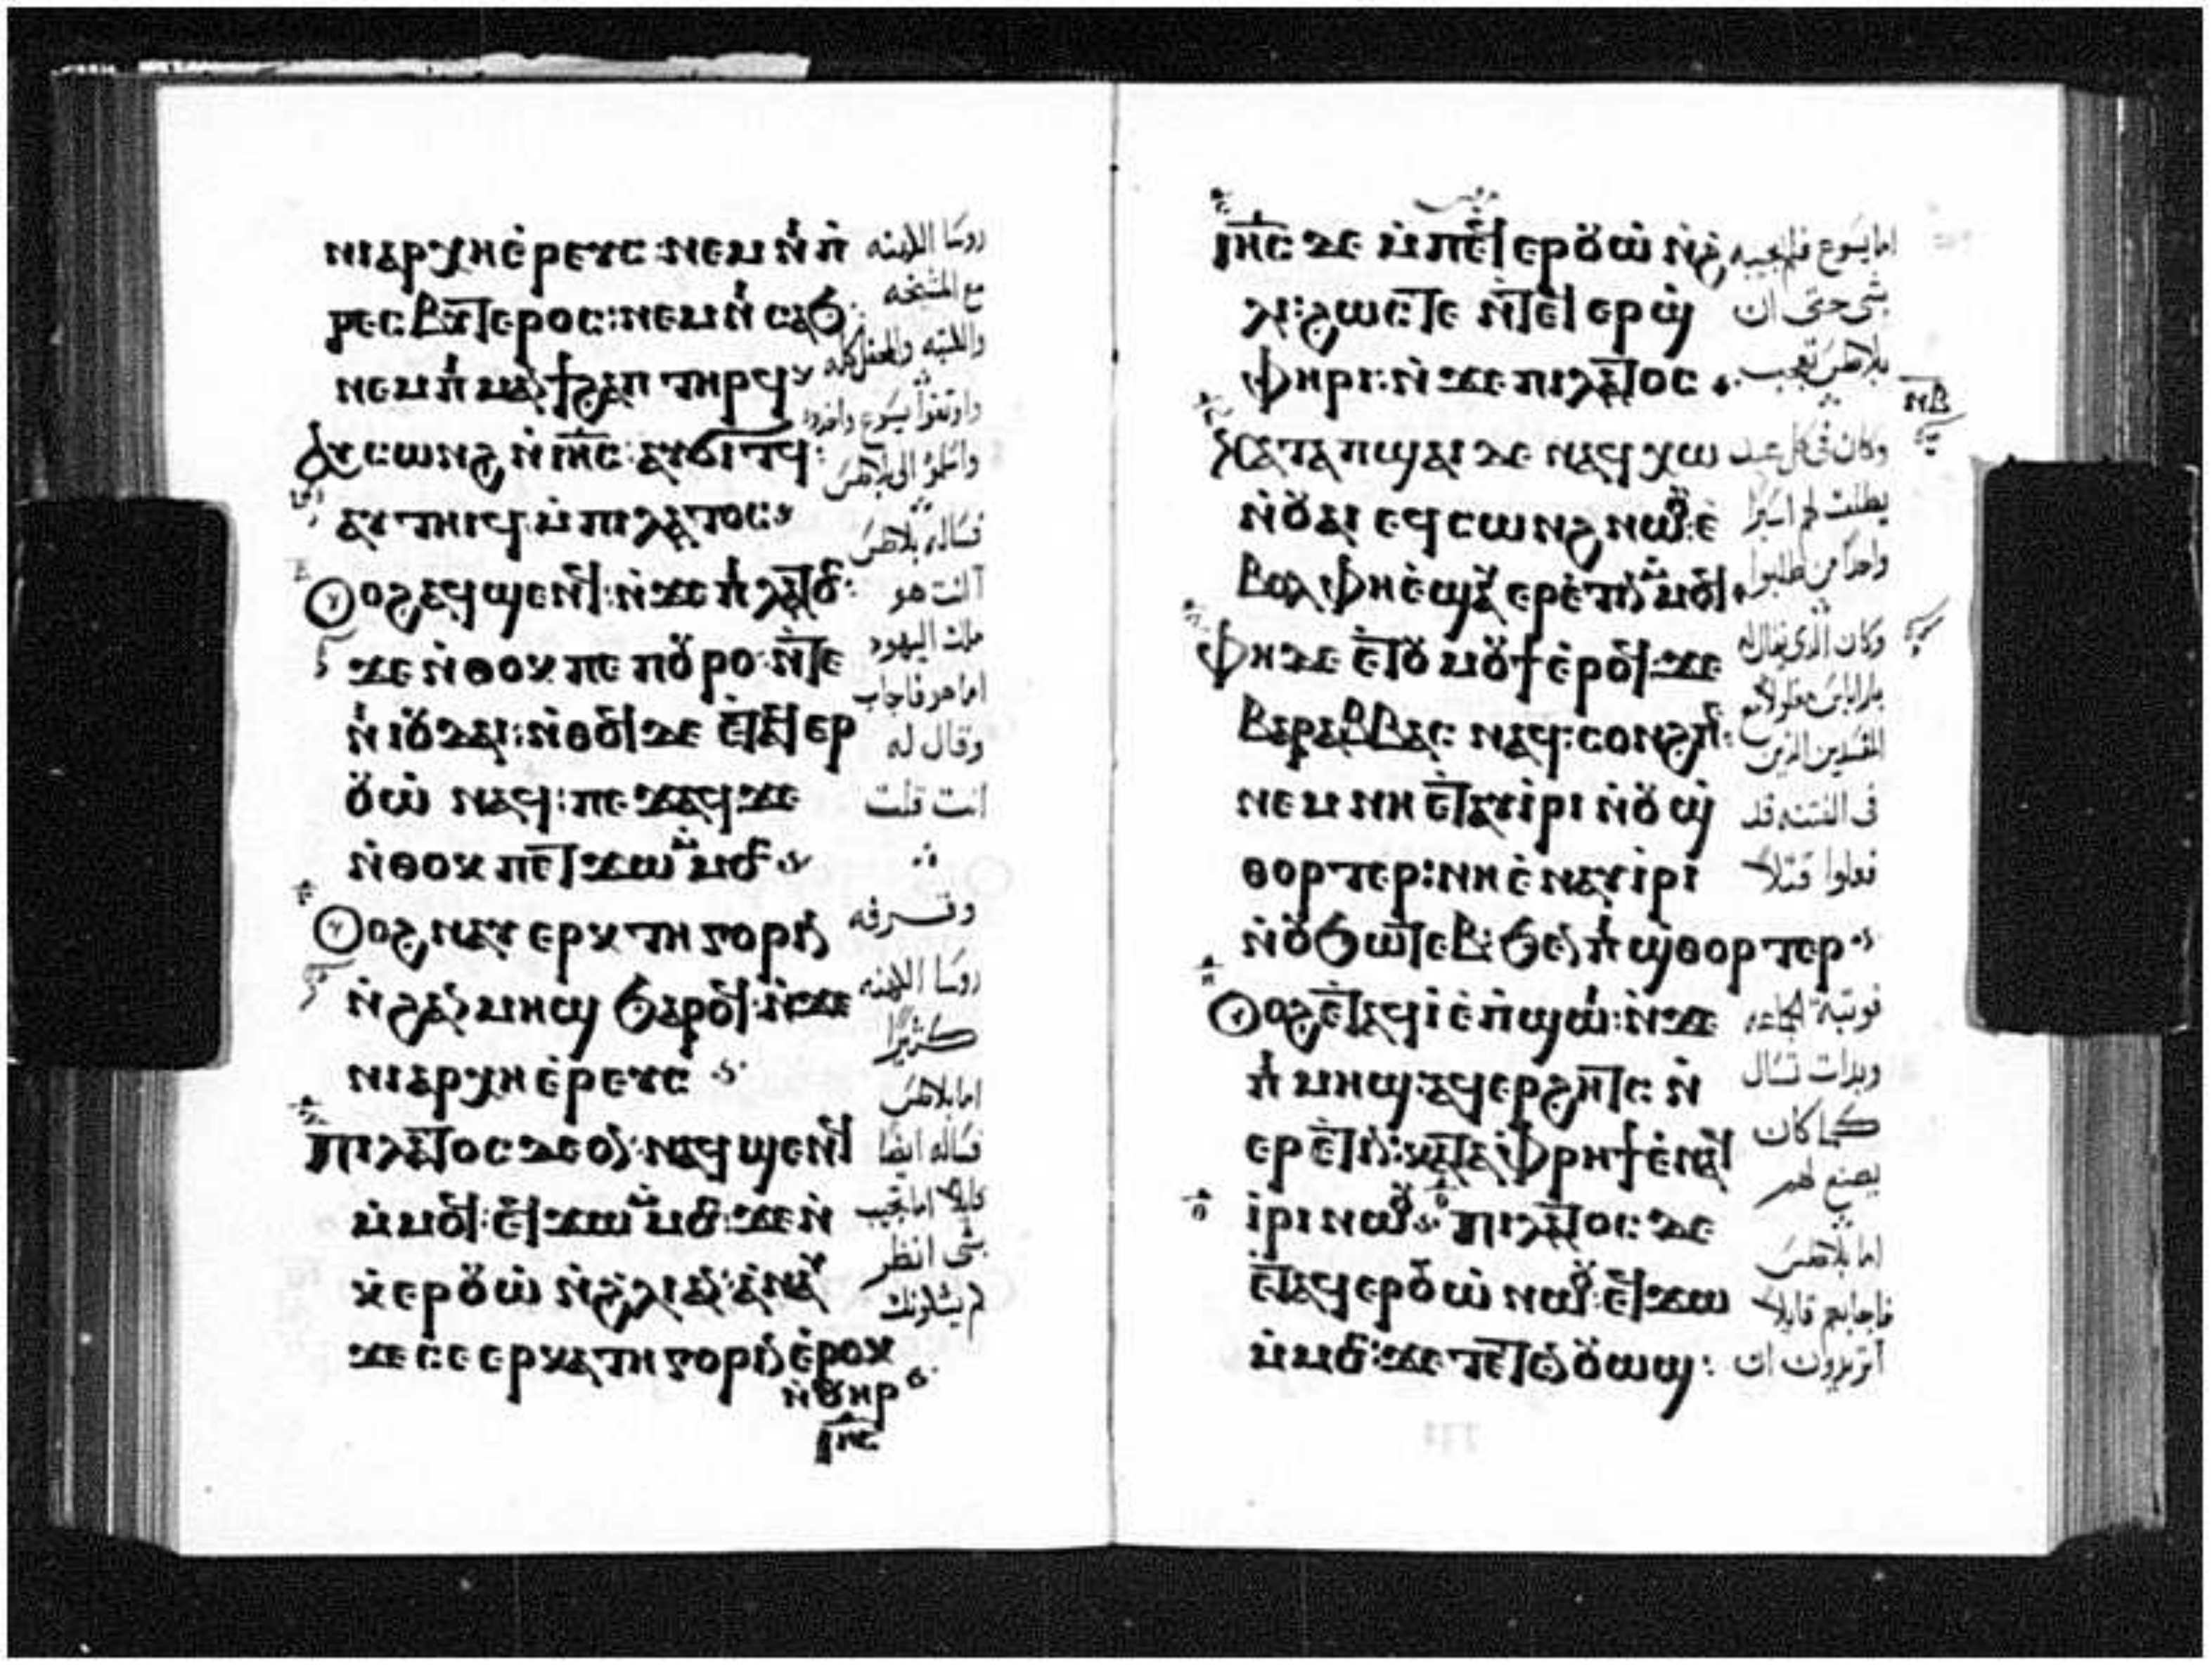 ⲛⲓⲁⲣⲭⲏⲉ̀ⲣⲉⲩⲥ:ⲛⲉⲙ ⲛⲓⲡ̀
ⲣⲉⲥⲃⲩⲧⲉⲣⲟⲥ:ⲛⲉⲙ ⲛⲓ ⲥⲁϧ:
ⲛⲉⲙ ⲡⲓ ⲙⲁⲛ̀ϯϩⲁⲡ ⲧⲏⲣϥ
ⲁⲩⲥⲱⲛϩ ⲛ̀ⲓⲏ̅ⲥ̅:ⲁⲩϭⲓⲧϥ:
ⲁⲩⲧⲏⲓϥ ⲙ̀ⲡⲓⲗⲁⲧⲟⲥ
ⲟⲩⲟϩ ⲁϥϣⲉⲛϥ:ⲛ̀ϫⲉ ⲡⲓⲗⲁⲧⲟⲥ:
ϫⲉ ⲛ̀ⲑⲟⲕ ⲡⲉ ⲡⲟⲩⲣⲟ ⲛ̀ⲧⲉ
ⲛⲓⲓⲟⲩⲇⲁⲓ:ⲛ̀ⲑⲟϥ ⲇⲉ ⲉⲧⲁϥⲉⲣ
ⲟⲩⲱ̀ ⲛⲁϥ:ⲡⲉϫⲁϥ ϫⲉ
ⲛ̀ⲑⲟⲕ ⲡⲉⲧϫⲱ ⲙ̀ⲙⲟⲥ
ⲟⲩⲟϩ ⲛⲁⲩ ⲉⲣⲕⲁⲧⲏⲅⲟⲣⲓⲛ
ⲛ̀ϩⲁⲛⲙⲏϣ ϧⲁⲣⲟϥ:ⲛ̀ϫⲉ
ⲛⲓⲁⲣⲭⲏⲉ̀ⲣⲉⲩⲥ
ⲡⲓⲗⲁⲧⲟⲥ ⲇⲉ ⲟⲛ:ⲛⲁϥϣⲉⲛϥ
ⲙ̀ⲙⲟϥ:ⲉϥϫⲱ ⲙ̀ⲙⲟⲥ:ϫⲉ ⲛ̀
ⲕ̀ⲉⲣⲟⲩⲱ̀ ⲛ̀ϩⲗⲓ ⲁⲛ:ⲁⲛⲁⲩ
ϫⲉ ⲥⲉ ⲉⲣⲕⲁⲧⲏⲅⲟⲣⲓⲛ ⲉ̀ⲣⲟⲕ
ⲛ̀ⲟⲩⲏⲣ
ⲓⲏ̅ⲥ̅
روسا الكهنه
مع المشيخه
والكتبه والمحفل كله
واوثقوا يسوع واخدوه
واسلموه الى بلاطس
فساله بلاطس
اانت هو
ملك اليهود
اما هو فاجاب
وقال له
انت قلت
وقرفه
روسا الكهنه
كثيرًا
اما بلاطس
فساله ايضا
قايلا اما تجيب
بشى انظر
ⲓⲏ̅ⲥ̅ ⲇⲉ ⲙ̀ⲡⲉϥ ⲉⲣⲟⲩⲱ̀ ⲛ̀ϩ
ⲗⲓ:ϩⲱⲥⲧⲉ ⲛ̀ⲧⲉϥ ⲉⲣϣ
ⲫⲏⲣⲓ:ⲛ̀ϫⲉ ⲡⲓⲗⲁⲧⲟⲥ
ⲕⲁⲧⲁ ⲡϣⲁⲓ ⲇⲉ ⲛⲁϥⲭⲱ
ⲛ̀ⲟⲩⲁⲓ ⲉϥⲥⲱⲛϩ ⲛⲱⲟⲩ:ⲉ̀
ⲃⲟⲗ ⲫⲏⲉ̀ϣⲁⲩ ⲉⲣⲉ̀ⲧⲓⲛ ⲙ̀ⲙⲟϥ
ⲫⲏ ⲇⲉ ⲉ̀ⲧⲟⲩ ⲙⲟⲩϯ ⲉ̀ⲣⲟϥ:ϫⲉ
ⲃⲁⲣⲁⲃⲃⲁⲥ ⲛⲁϥ:ⲥⲟⲛϩⲡⲉ:
ⲛⲉⲙ ⲛⲏ ⲉⲧⲁⲩⲓ̀ⲣⲓ ⲛ̀ⲟⲩ ϣ
ⲑⲟⲣⲧⲉⲣ:ⲛⲏ ⲉ̀ⲛⲁⲩⲓ̀ⲣⲓ
ⲛ̀ⲟⲩϧⲱⲧⲉⲃ:ϧⲉⲛ ⲡⲓ ϣⲑⲟⲣⲧⲉⲣ
ⲟⲩⲟϩ ⲉⲧⲁϥⲓ̀ ⲉ̀ⲡϣⲱⲓ:ⲛ̀ϫⲉ
ⲡⲓ ⲙⲏϣ:ⲁϥⲉⲣϩⲏⲧⲥ ⲛ̀
ⲉⲣⲉ̀ⲧⲓⲛ:ⲕⲁⲧⲁⲫⲣⲏϯ ⲉ̀ⲛⲁϥ
ⲓ̀ⲣⲓ ⲛⲱⲟⲩ ⲡⲓⲗⲁⲧⲟⲥ ⲇⲉ
ⲉⲧⲁϥⲉⲣⲟⲩⲱ̀ ⲛⲱⲟⲩ:ⲉϥϫⲱ
ⲙ̀ⲙⲟⲥ:ϫⲉ ⲧⲉⲧⲉⲛⲟⲩⲱϣ:
اما يسوع فلم يجيبه
بشى حتى ان
بلاطس تعجب
وكان فى كل عيد
يطلق لهم اسيرًا
واحدًا من طلبوا
وكان الذى يقال له
فى الفتنه قد
فعلوا قتلًا
وبدات تسال
كما كان
يصنع لهم
اما بلاطس
فاجابهم قايلًا
اتريدون ان
ⲛⲃ